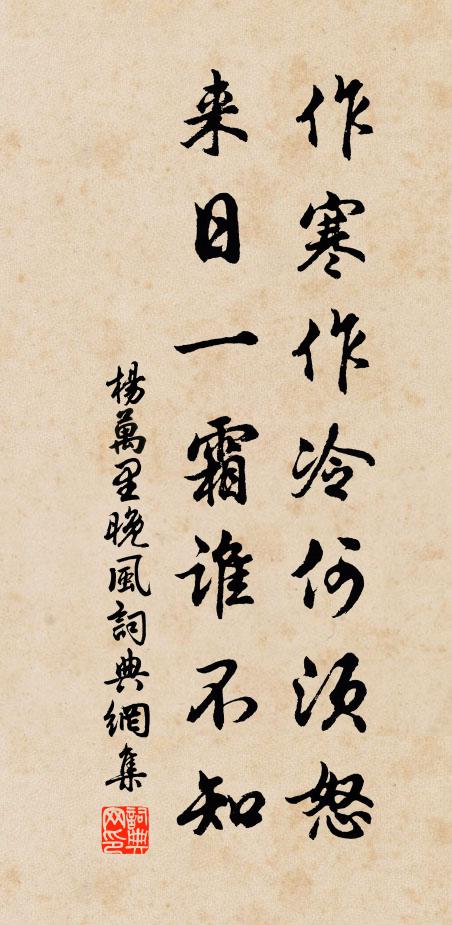 作寒作冷何须怒
来日一霜谁不知
楊萬里晚風詞典網集
詞典网印